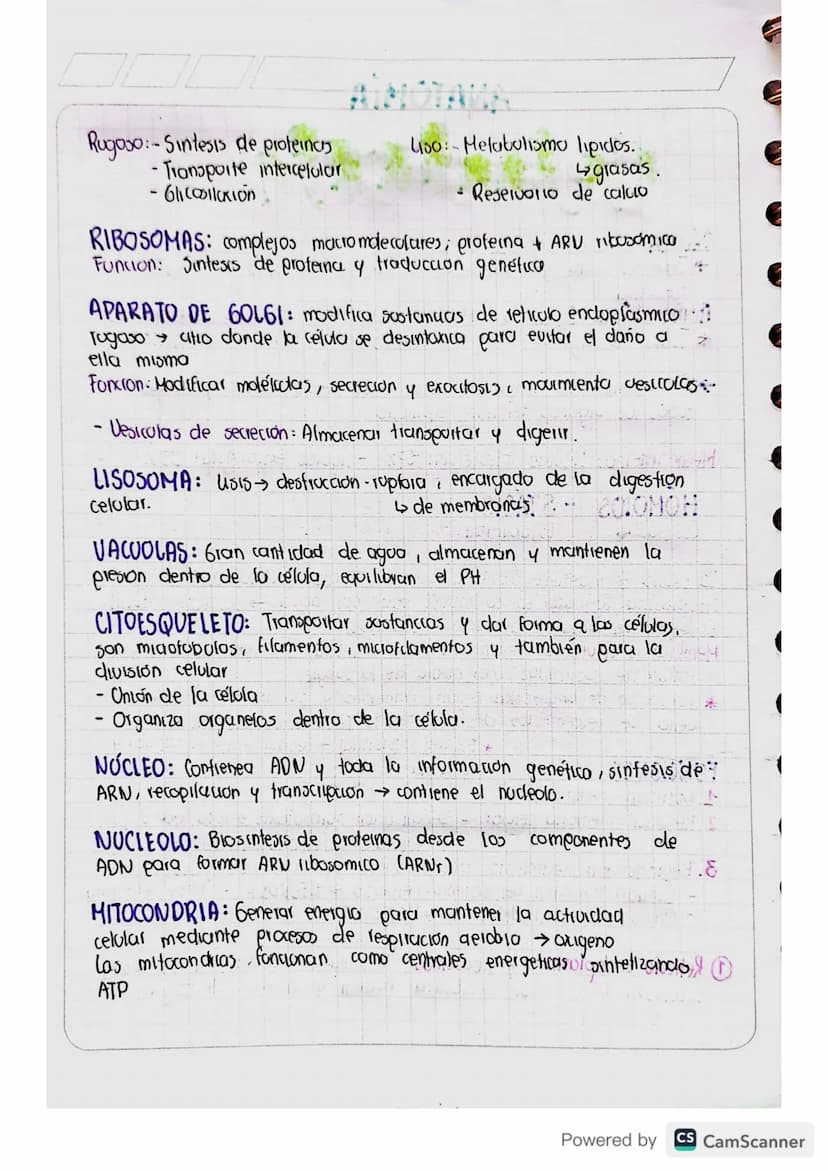 ANATOMÍA
Rugoso:- Sintesis de proteinas Liso:- Metabolismo lipidos.
- Transporte intercelular ↳grasas.
- Glicosilación - Reservorio de calcio
RIBOSOMAS: complejos macromoleculares, proteina + ARN ribosómico
Funcion: Sintesis de proteina y traducción genética
APARATO DE GOLGI: modifica sustancias de reticulo endoplasmico
rugoso → sitio donde la célula se desintoxica para evitar el daño a
ella misma
Función: Modificar moléculas, secreción y exocitosis, movimiento vesículas
- Vesiculas de secreción: Almacenar transportar y digerir.
LISOSOMA: Lisis → destrucción - ruptura, encargado de la digestion
celular. ↳ de membranas
VACUOLAS: Gran cantidad de agua, almacenan y mantienen la
presion dentro de la célula, equilibran el PH
CITOESQUELETO: Transportar sustancias y dar forma a las células,
son microtubulos, filamentos, microfilamentos y también para la
división celular
- Unión de la célula
- Organiza organelos dentro de la célula.
NÚCLEO: Contienea ADN y toda la información genética, sintesis de
ARN, recopilación y transcripción → contiene el nucleolo.
NUCLEOLO: Biosintesis de proteinas desde los componentes de
ADN para formar ARN ribosomico (ARNr)
MITOCONDRIA: Generar energia para mantener la actividad
celular mediante procesos de respiración aerobia → oxigeno
Las mitocondrias funcionan como centrales energeticas sintetizando
ATP
Powered by CS CamScanner